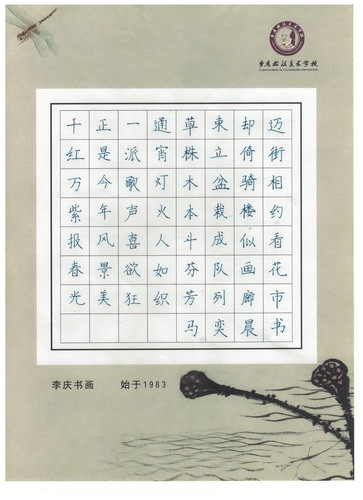 重庆书法美术学校
迈街相约看花市
却倚骑楼似画廊
束立盆栽成队列
草株木本斗芬芳
通宵灯火人如织
一派歌声喜欲狂
正是今年风景美
千红万紫报春光
马奕晨书
李庆书画 始于1983